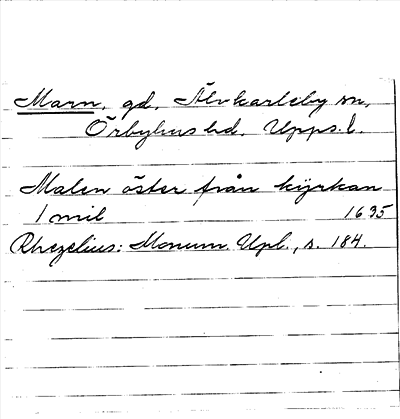 Marn, gd, Älvkarleby sn,
Örbyhus hd. Upps. l.
Malen öster från kyrkan
1 mil 1635
Rhezelius: Monum. Upl., s. 184.